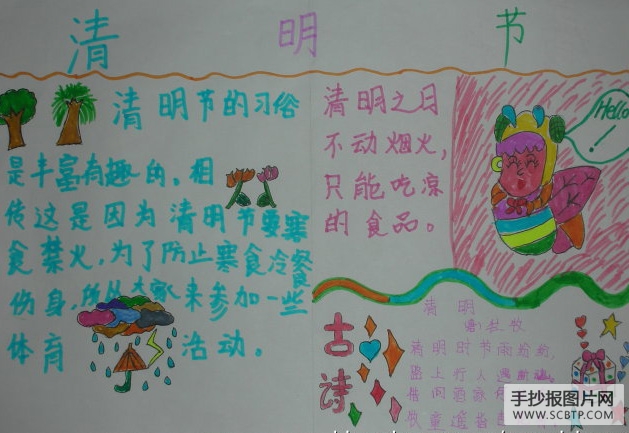 清明节
清明节的习俗
是丰富有趣的。相
传这是因为清明节要寒
食禁火,为了防止寒食冷餐
伤身,所以大家来参加一些
体育活动。
清明之日
不动烟火,
只能吃凉
的食品。
Hello!
古诗
清明
杜牧
清明时节雨纷纷,
路上行人
借问酒家
牧童遥指
手抄报图片网
WWW.SCBTP.COM